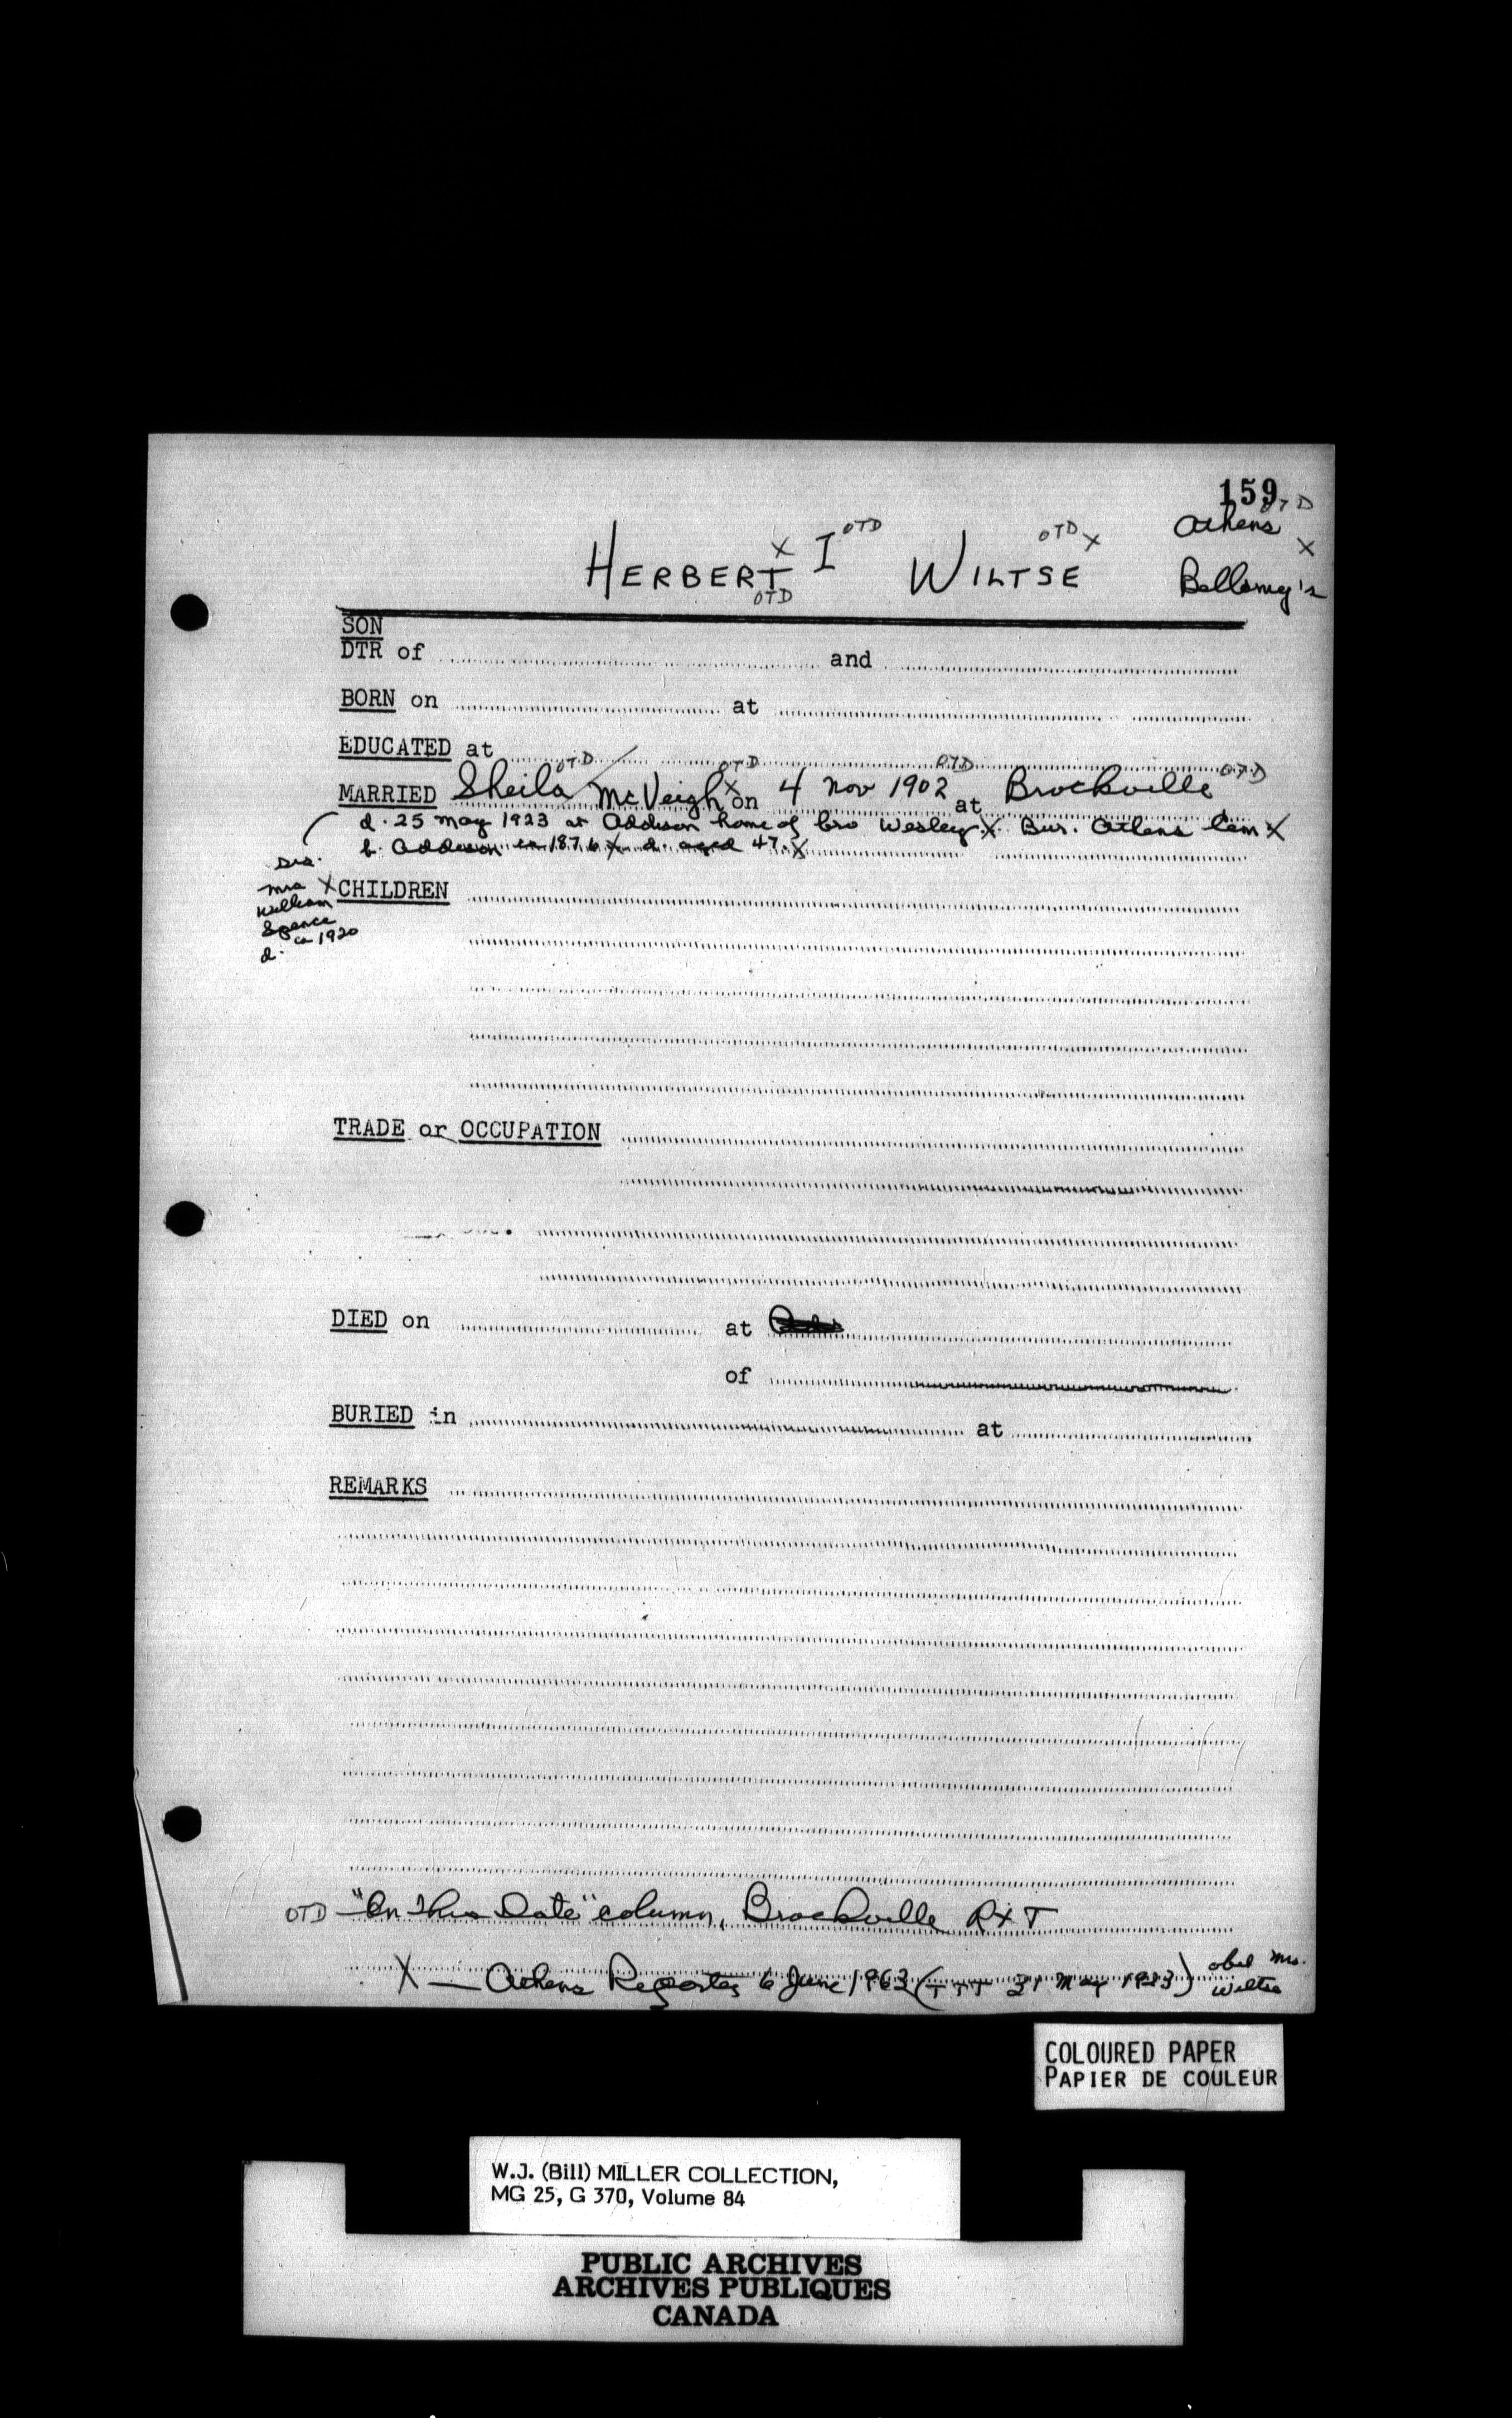 159
OTD
Athens
X
Bellamy's
HERBERT X OTD I OTD WILTSE OTD X
SON
DTR of and
BORN on at
EDUCATED at
MARRIED Sheila OTD McVeigh OTD X on 4 Nov 1902 OTD at Brockville OTD
d. 25 May 1923 at Addison home of bro Wesley X Bur. Athens Cem X
b. Addison ca 1876 X d. aged 47. X
sis.
Mrs X
William
Spence
d. ca 1920
CHILDREN
TRADE or OCCUPATION
DIED on at
of
BURIED in at
REMARKS
OTD - "On This Date" column, Brockville R & T
X - Athens Reporter 6 June 1963 (TTT 31 May 1923) obit Mrs.
Wiltse
COLOURED PAPER
PAPIER DE COULEUR
W.J. (Bill) MILLER COLLECTION,
MG 25, G 370, Volume 84
PUBLIC ARCHIVES
ARCHIVES PUBLIQUES
CANADA